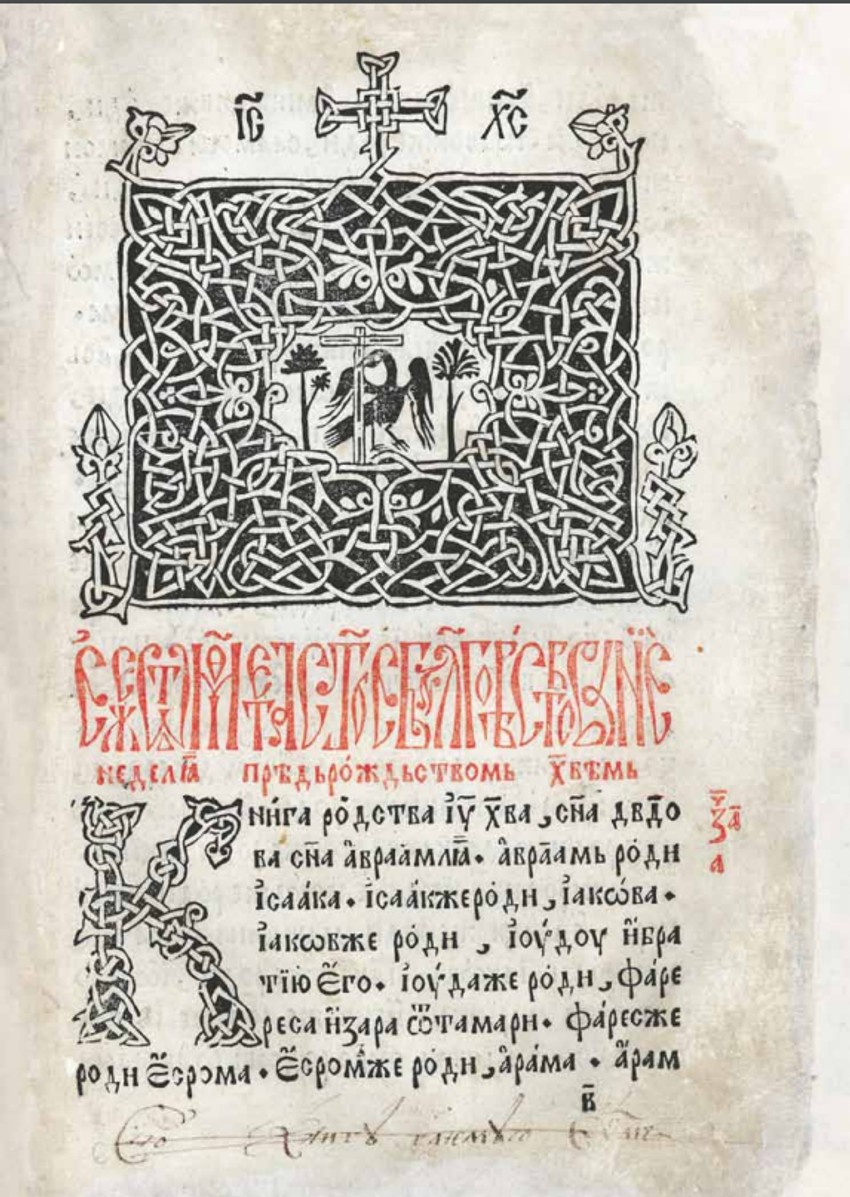 І҃С Х҃С
ЕЖЕ Ѿ МАТЕА СТ҃ОЕ БЛ҃ГОВѢСТВОВАНЇЕ
неделꙗ прѣдьро́ждьствомь х҃вѣмь
Кни́га ро́дства і҃у х҃ва , сн҃а дв҃до
ва сн҃а а҆враа́млꙗ · а҆враа́мь ро́ди
і҆саа́ка · і҆саа́кжеро́ди , і҆акѡ́ва ·
і҆акѡвже ро́ди , і҆оу́доу и҆бра
тїю є҆го · і҆оу́даже ро́ди , фа́ре
реса и҆зара ѿтамари · фа́ресже
роди є҆срома · є҆сромже ро́ди , а҆ра́ма · а҆рам
в҃